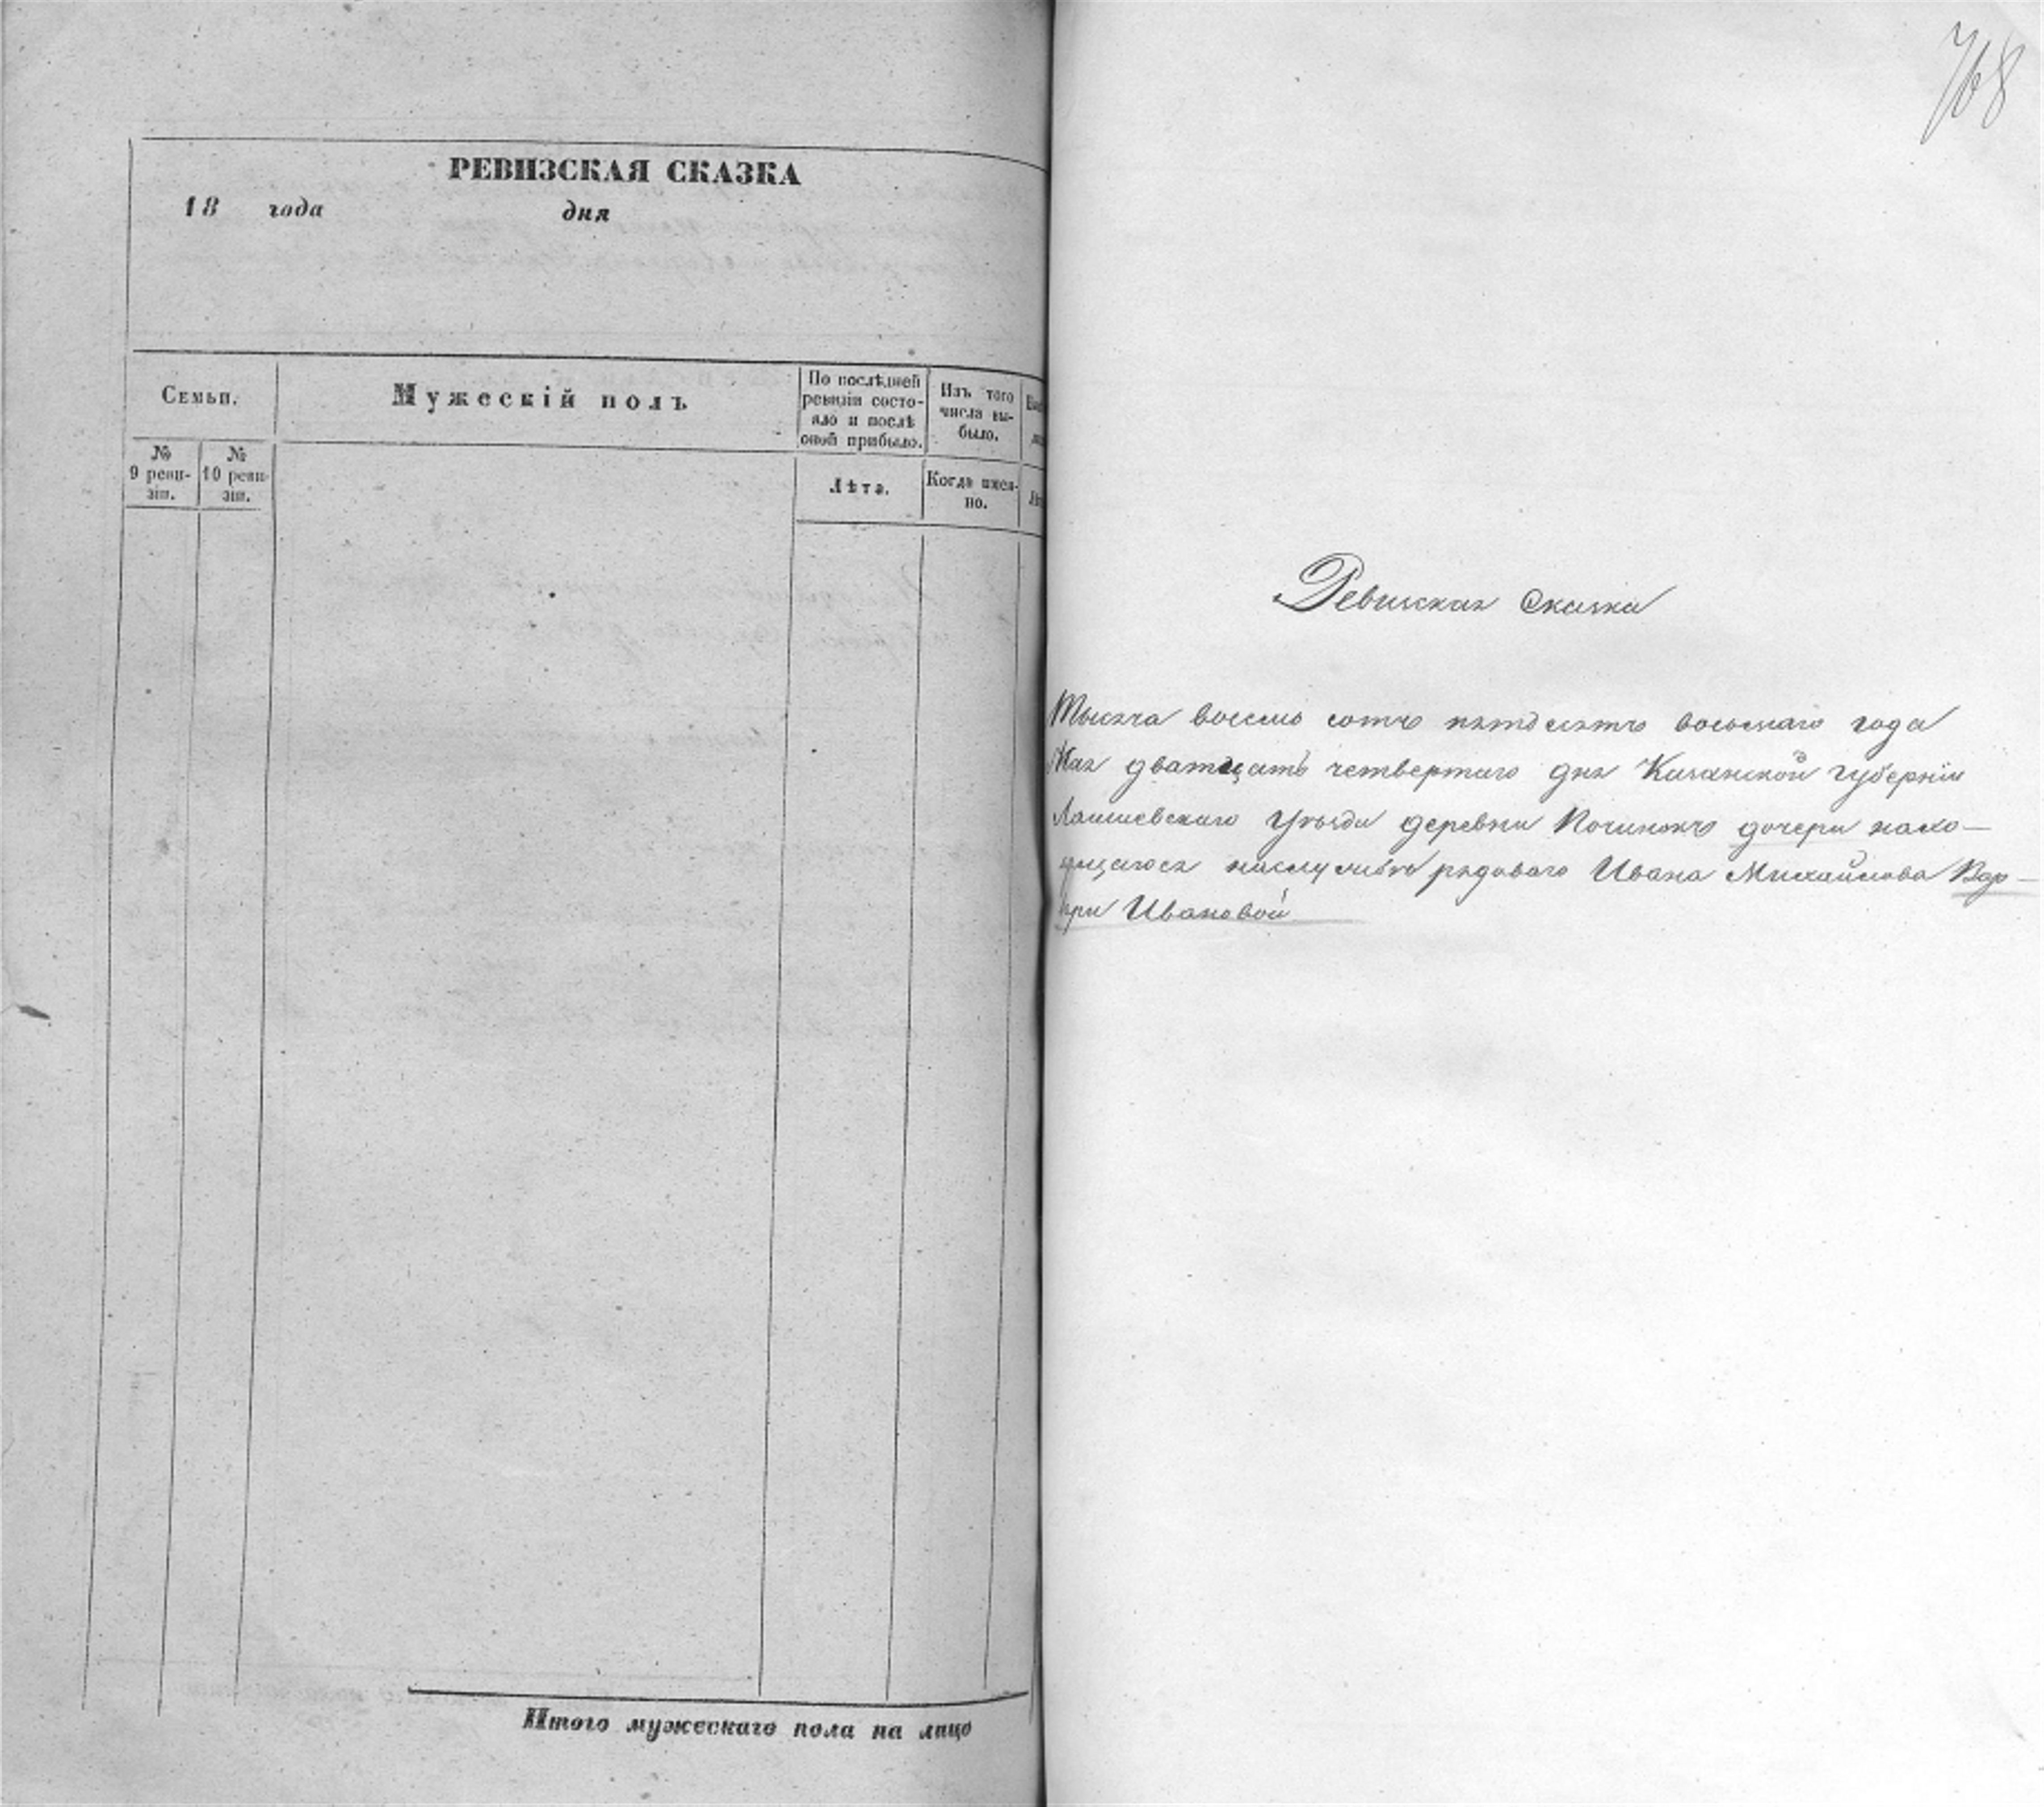 РЕВИЗСКАЯ СКАЗКА
18 года дня
Семьи.
Мужескій полъ
По послѣдней
ревизіи состо-
яло и послѣ
оной прибыло.
Изъ того
числа вы-
было.
№
9 реви-
зіи.
№
10 реви-
зіи.
Лѣта.
Когда имен-
но.
Итого мужескаго пола на лицо
768
Ревизская Сказка
Тысяча восемь сотъ пятдесятъ восьмаго года
Мая дватцать четвертаго дня Казанской губерніи
Лаишевскаго Уѣзда деревни Починокъ дочери нахо-
дящагося наслужбѣ рядоваго Ивана Михайлова Вар-
Ивановой